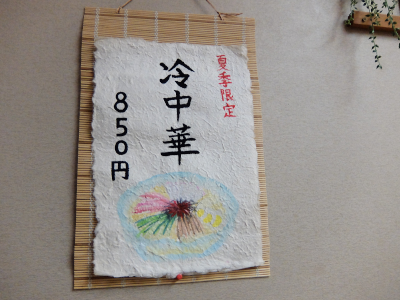 夏季限定
冷中華
850円